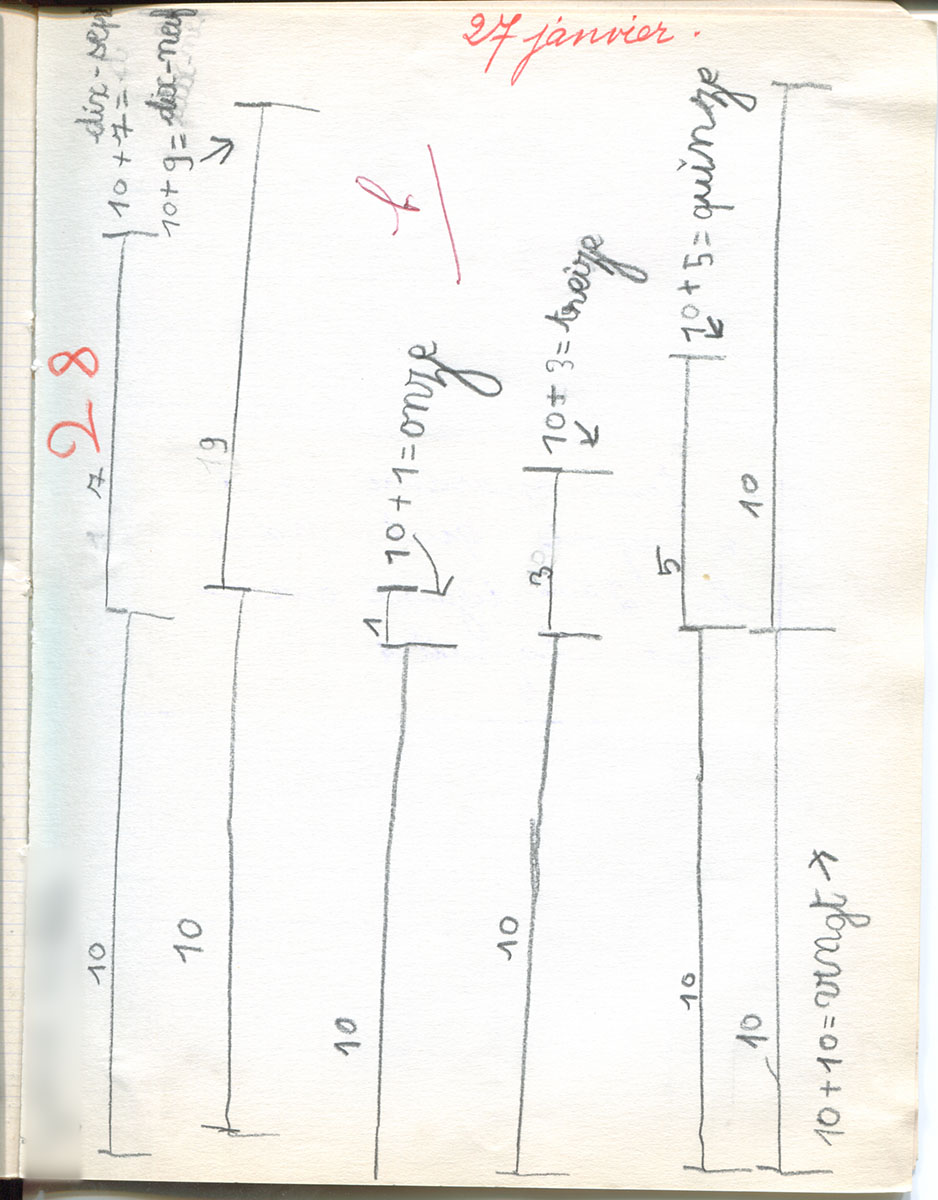 27 janvier.
28
10 7
10 + 7 = dix-sept
10 19
10 + 9 = dix-neuf
10 1
10 + 1 = onze
10 3
10 + 3 = treize
10 5
10 + 5 = quinze
10 10
10 + 10 = vingt